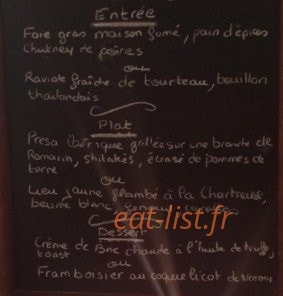 Entrée
Foie gras maison fumé, pain d'épices
Chutney de poires
ou
Raviole fraîche de tourteau, bouillon
thaïlandais
Plat
Presa ibérique grillée sur une branche de
Romarin, shitakés, écrasé de pommes de
terre
ou
Lieu jaune flambé à la Chartreuse,
beurre blanc,
eat-list.fr
Dessert
Crème de Brie chaude à l'huile de truffe,
toast
ou
Framboisier au coquelicot de